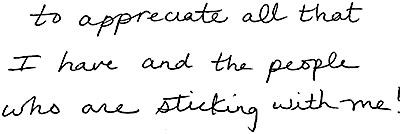 to appreciate all that
I have and the people
who are sticking with me!